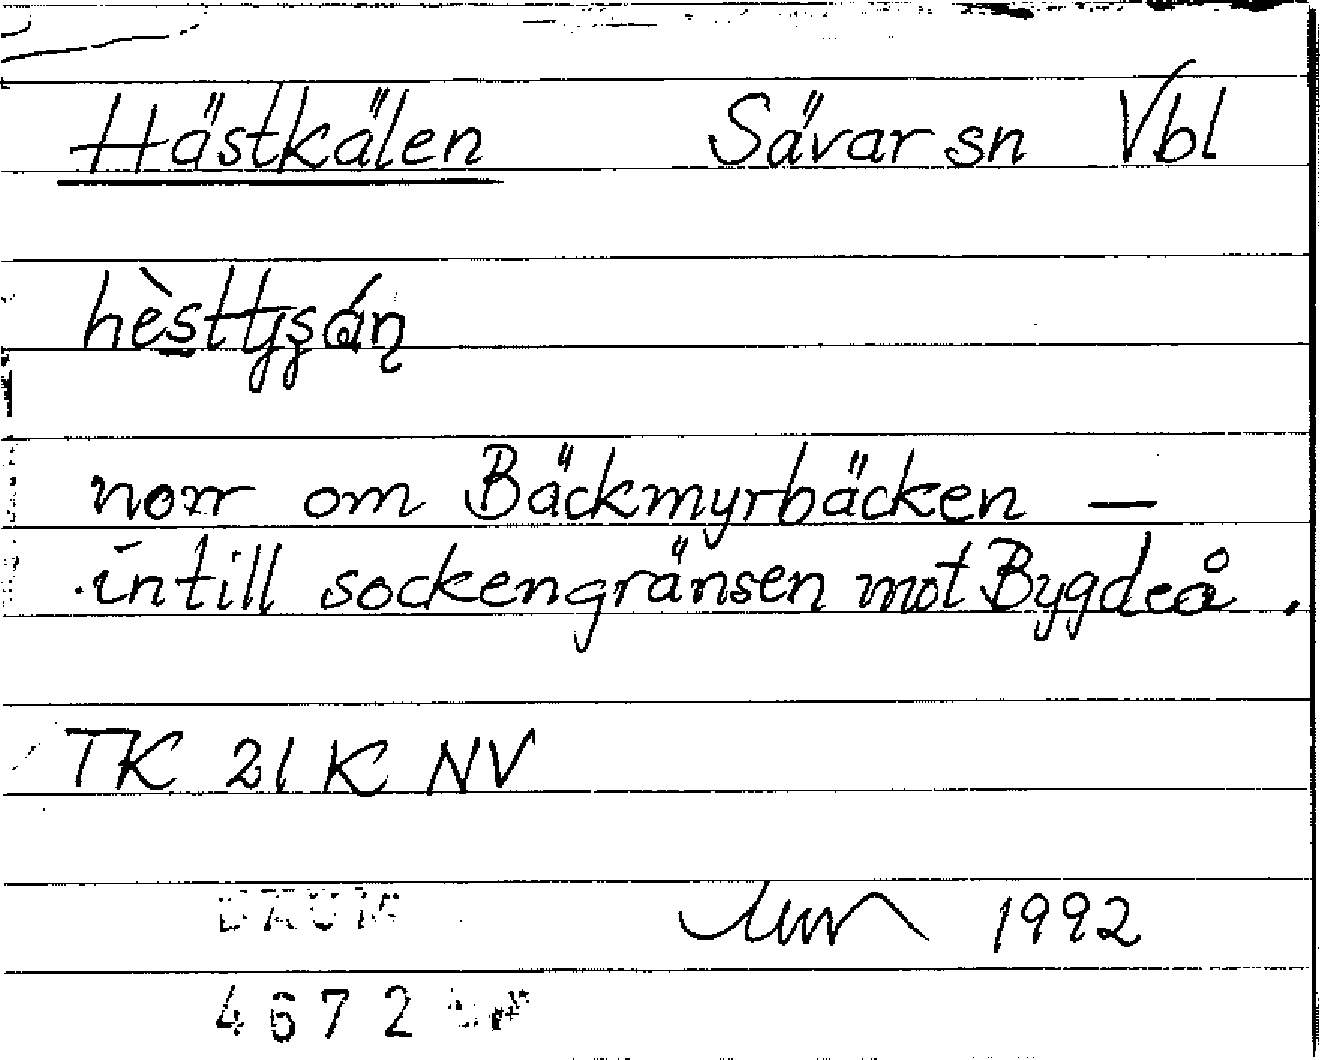 Hästkälen Sävar sn Vbl
norr om Bäckmyrbäcken —
intill sockengränsen mot Bygdeå.
TK 21 K NV
DAUM 1992
4672